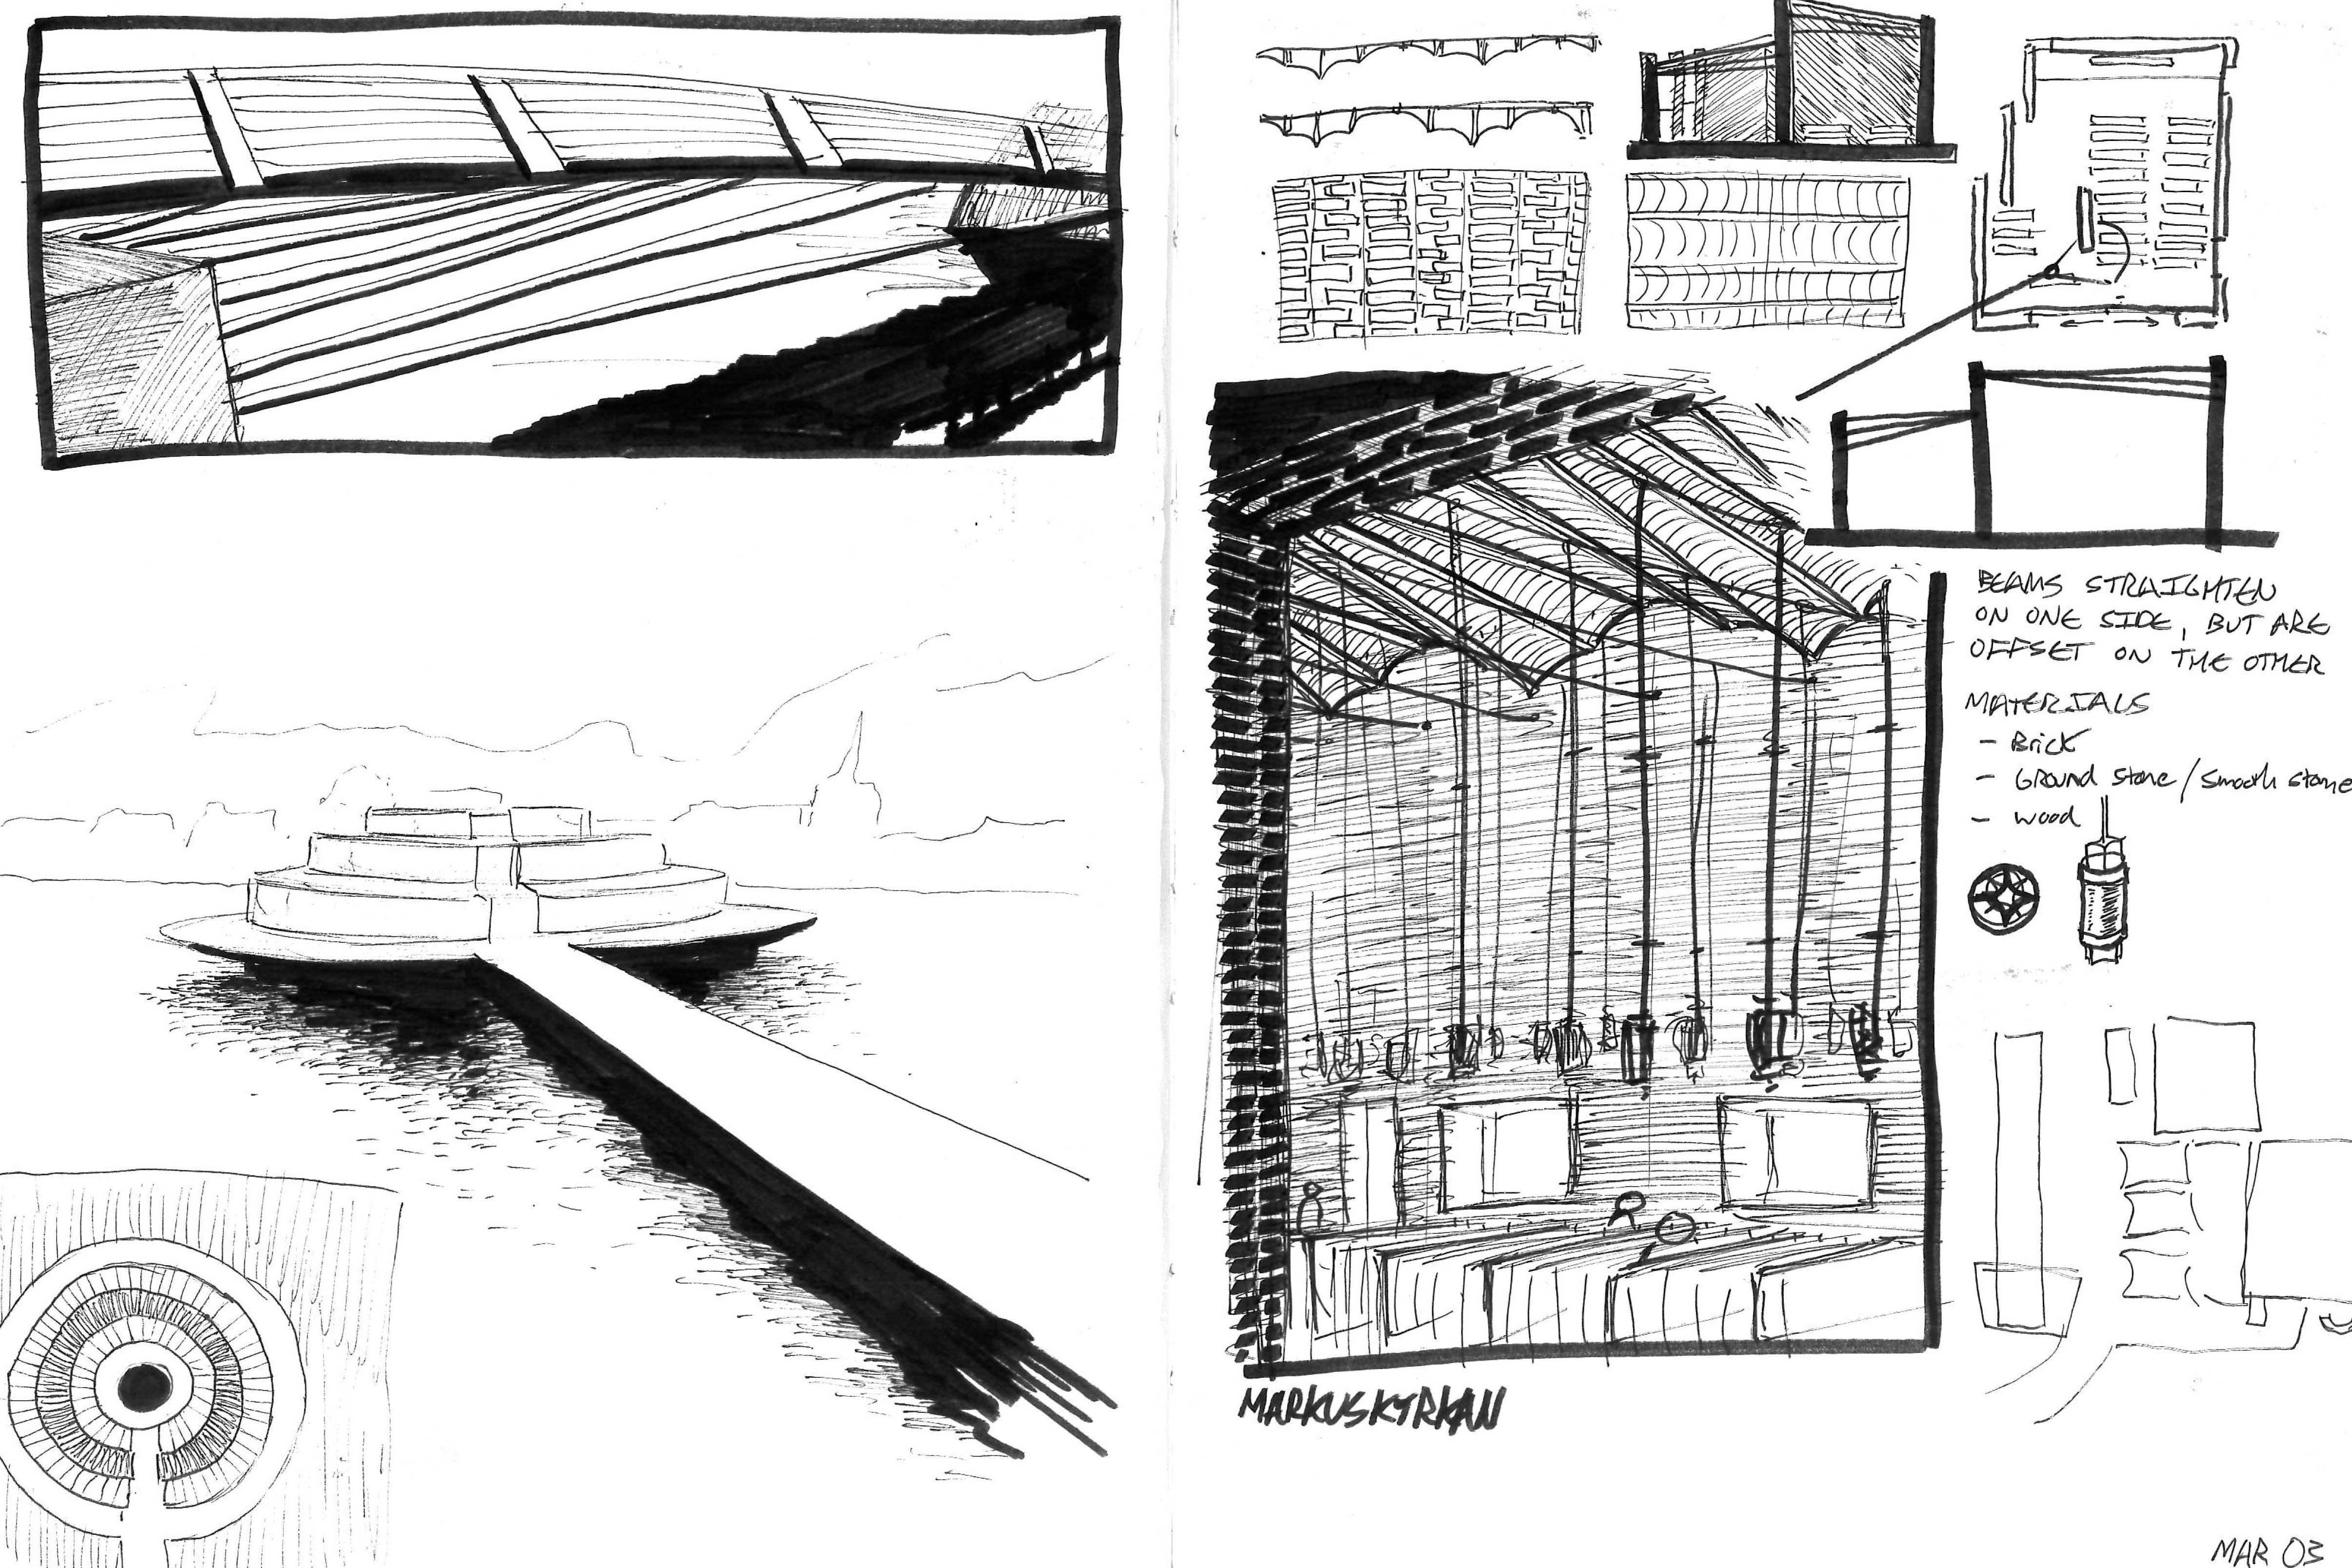 BEAMS STRAIGHTEN
ON ONE SIDE, BUT ARE
OFFSET ON THE OTHER
MATERIALS
- Brick
- Ground stone / Smooth stone
- wood
MARKUSKYRKAN
MAR 03